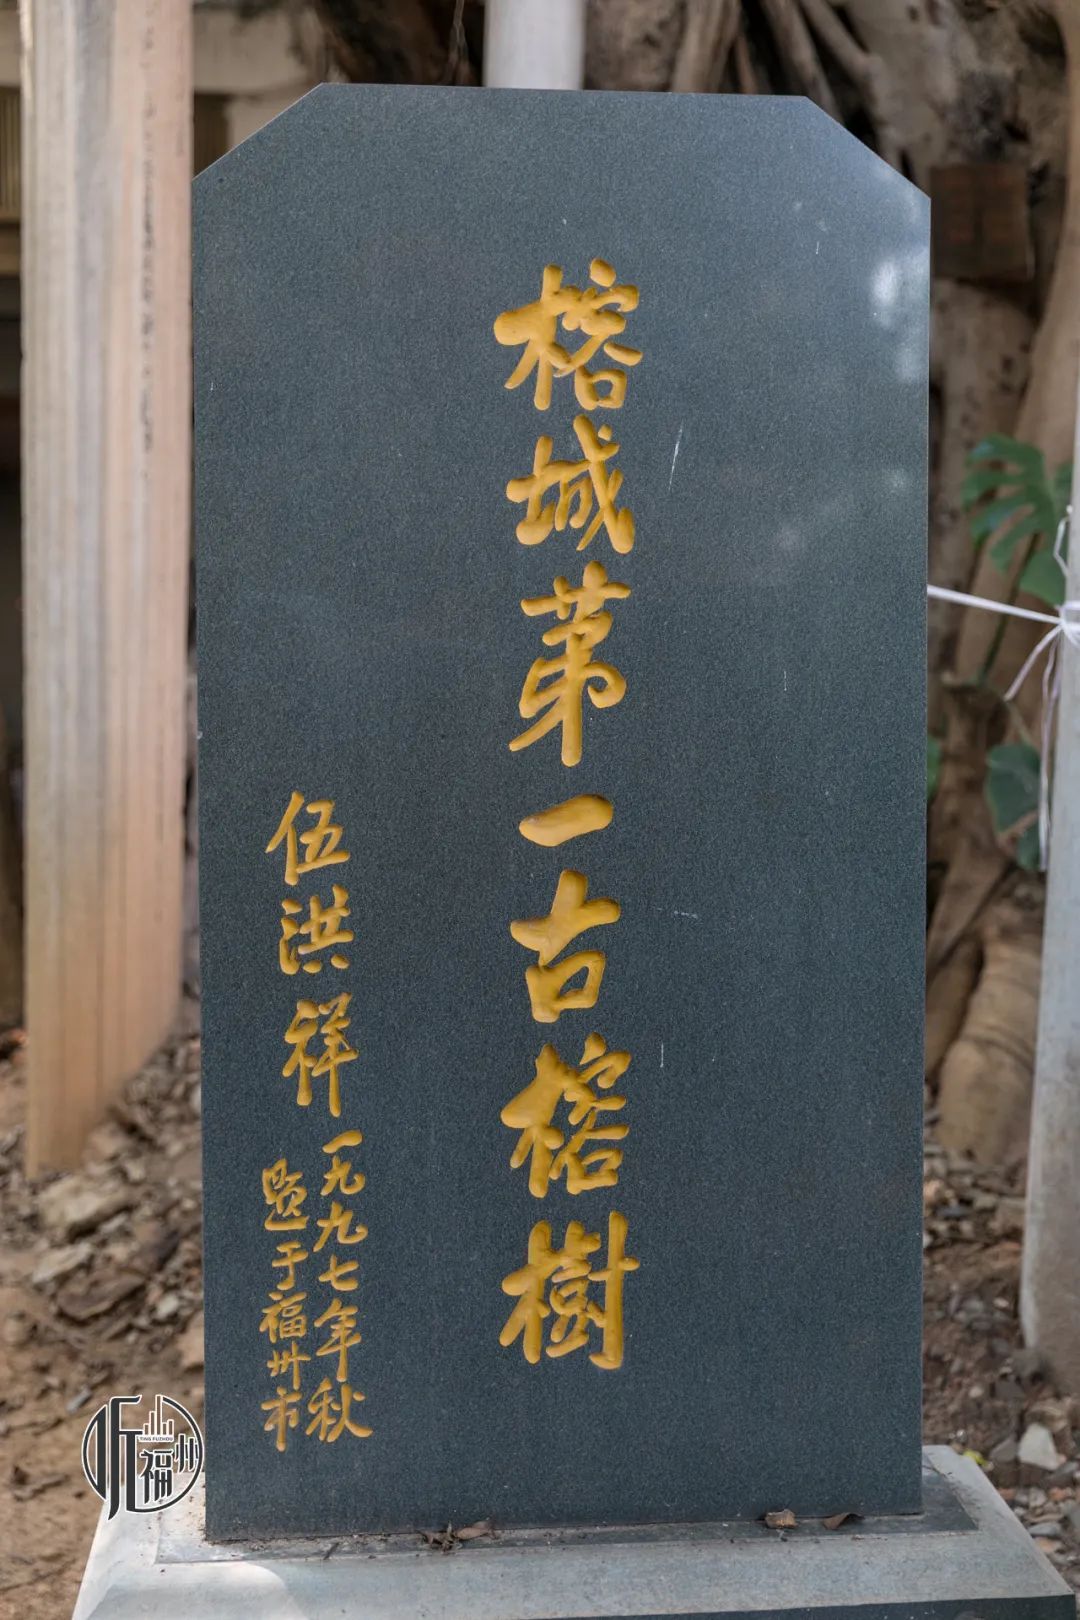 榕城第一古榕樹
伍洪祥
一九九七年秋
题于福州市
听福州
TING FUZHOU